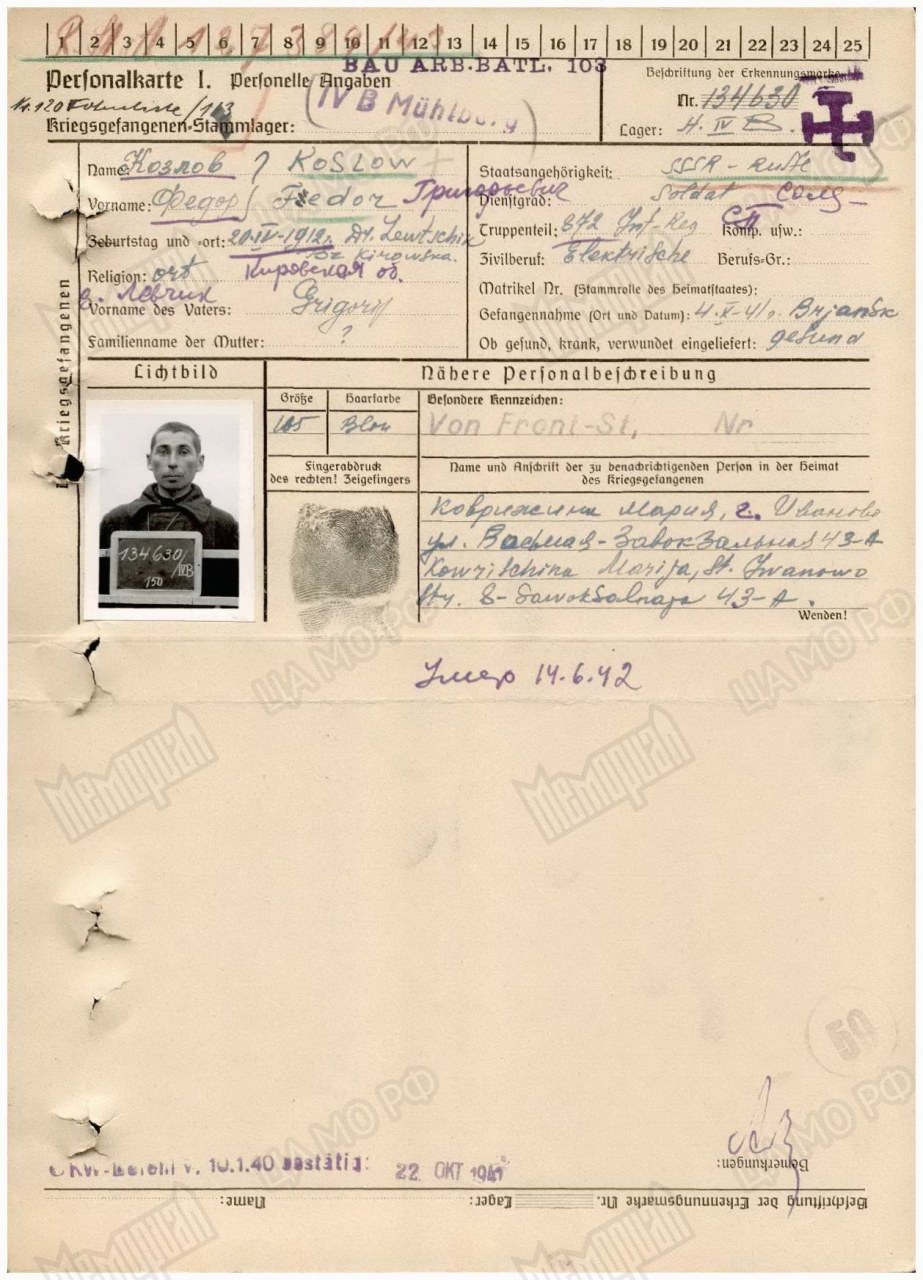 1 2 3 4 5 6 7 8 9 10 11 12 13 14 15 16 17 18 19 20 21 22 23 24 25
BAU ARB.BATL. 103
Personalkarte I. Personelle Angaben
Kriegsgefangenen-Stammlager:
(IV B Mühlberg)
Beschriftung der Erkennungsmarke
Nr. 134630
Lager: IV B.
Name: Козлов / Koslow
Vorname: Федор / Fedor Григорьевич
Geburtstag und -ort: 20-IV-1912. Dr. Lewtschik
Bz Kirowska.
Кировская об.
Religion: ort
д. Левчик
Vorname des Vaters: Grigorij
Familienname der Mutter: ?
Staatsangehörigkeit: SSSR - Russe
Dienstgrad: Soldat Солд-
Truppenteil: 872 Inf-Reg Komp. usw.:
СП
Zivilberuf: Elektrische Berufs-Gr.:
Matrikel Nr. (Stammrolle des Heimatstaates):
Gefangennahme (Ort und Datum): 4.X-41. Brjansk
Ob gesund, krank, verwundet eingeliefert: gesund
Kriegsgefangenen
Lichtbild
134630/IVB
150
Nähere Personalbeschreibung
Größe Haarfarbe Besondere Kennzeichen:
165 Blon Von Front-St. Nr
Fingerabdruck
des rechten! Zeigefingers
Name und Anschrift der zu benachrichtigenden Person in der Heimat
des Kriegsgefangenen
Мария, г. Иваново
ул. 43-А
Kowrischina Marija, St. Iwanowo
Str. 8-Sawoksalnaja 43-A.
Wenden!
Умер 14.6.42
59
OKW-Befehl v. 10.1.40 bestätig: 22 OKT 1941
Bemerkungen:
Beschriftung der Erkennungsmarke Nr. Lager: Name:
Мемориал
ЦАМО РФ